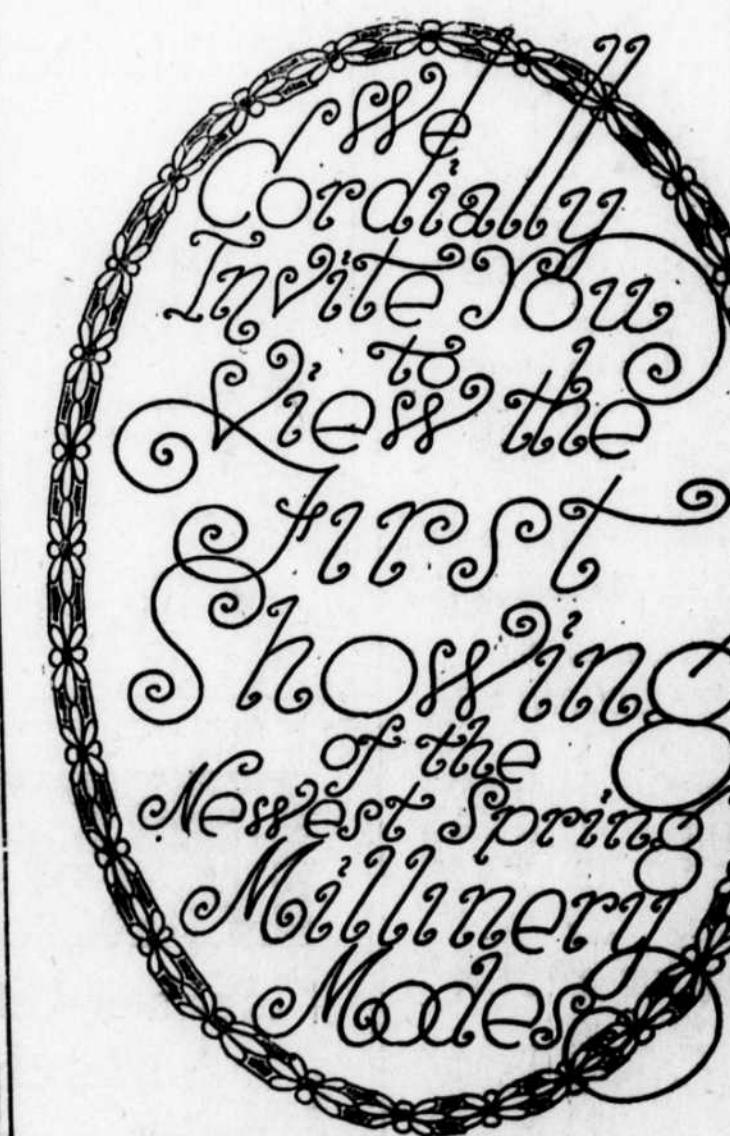 We
Cordially
Invite You
to
View the
First
Showing
of the
Newest Spring
Millinery
Modes